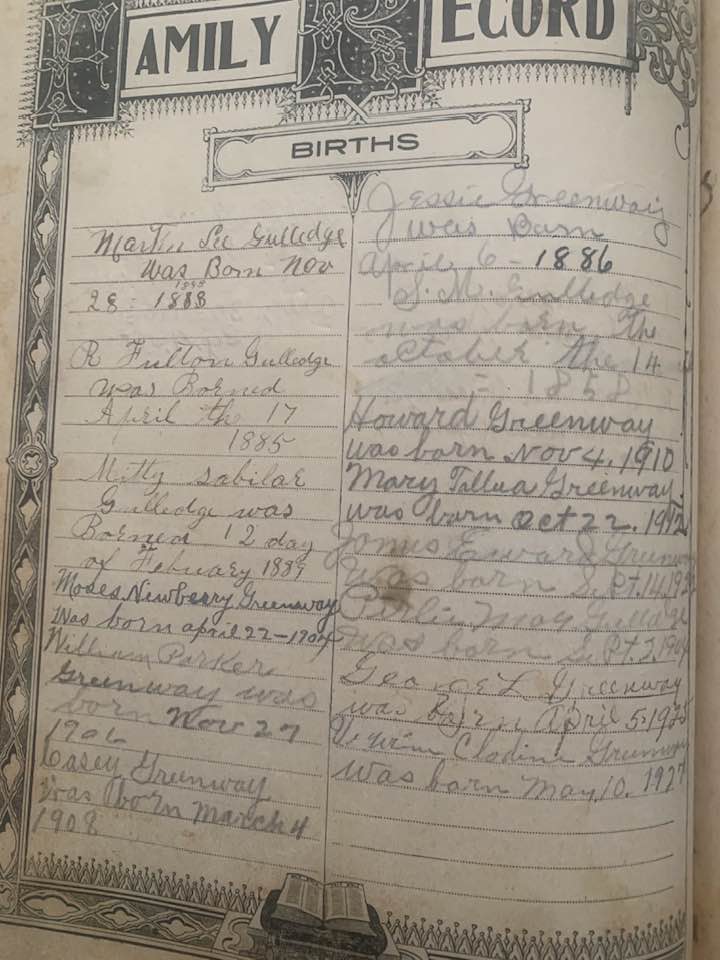 FAMILY RECORD
BIRTHS
Lee Gulledge
Was Born Nov
28 = 1888
R Fulton Gulledge
was Borned
April the 17
1885
Mitty Sabilar
Gulledge was
Borned 12 day
of February 1887
Moses Newberry Greenway
Was born april 22 - 1904
William Parker
Greenway was
born Nov 27
1906
Casey Greenway
Was born March 4
1908
Jessie Greenway
was Born
April 6 - 1886
S. M. Gulledge
was born the
october the 14
= 1858
Howard Greenway
was born Nov 4. 1910
Mary Greenway
was born Oct 22. 1912
James Greenway
was born Sept. 14.
May Gulledge
was born Sept.
George L Greenway
was born April 5. 1925
Clodine Greenway
was born May 10. 1927